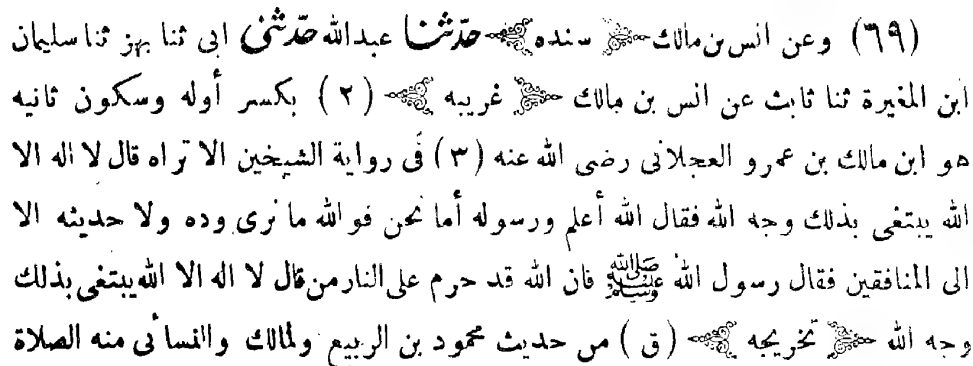 (٦٩) وعن انس بن مالك ﴿ سنده ﴾ حدّثنا عبد الله حدّثنى ابى ثنا بهز ثنا سليمان
ابن المغيرة ثنا ثابث عن انس بن مالك ﴿ غريبه ﴾ (٢) بكسر أوله وسكون ثانيه
هو ابن مالك بن عمرو العجلانى رضى الله عنه (٣) فى رواية الشيخين الا تراه قال لا اله الا
الله يبتغى بذلك وجه الله فقال الله أعلم ورسوله أما نحن فو الله ما نرى وده ولا حديثه الا
الى المنافقين فقال رسول الله ﷺ فان الله قد حرم على النار من قال لا اله الا الله يبتغى بذلك
وجه الله ﴿ تخريجه ﴾ (ق) من حديث محمود بن الربيع ولمالك والنسائى منه الصلاة